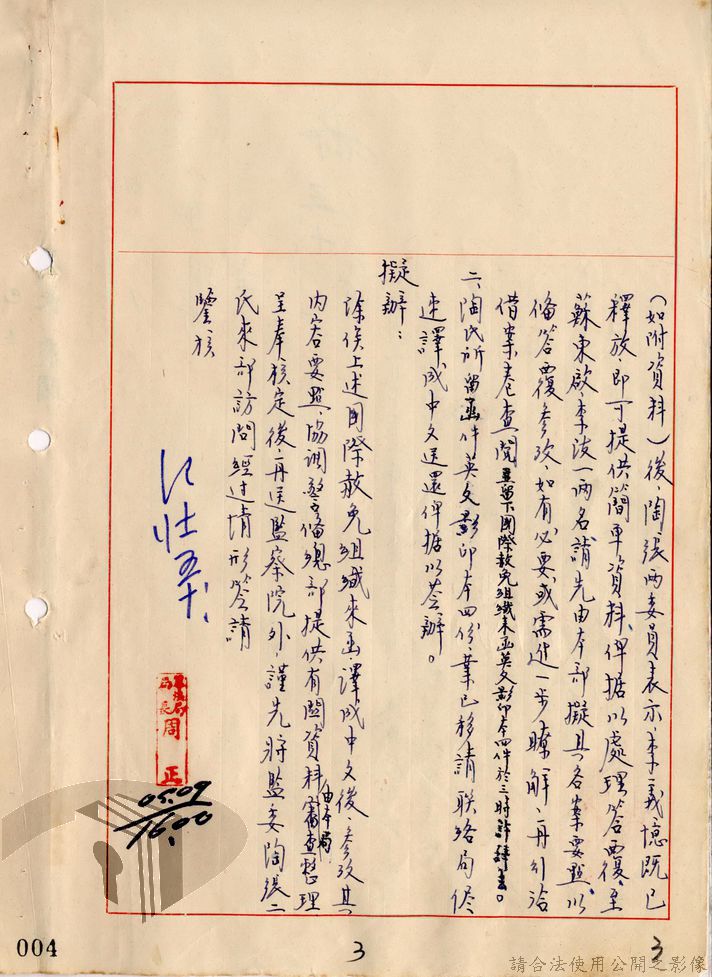 （如附資料）後陶張兩委員表示：李義憶既已
釋放，即可提供簡單資料，俾據以處理答覆，至
蘇東啟、李波一兩名請先由本部擬具各案要點，以
備答覆參考，如有必要或需進一步瞭解，再行洽
借案卷查閱並留下國際赦免組織來函英文影印本四件於三時許辭去。
二、陶氏所留函件英文影印本四份，業已移請聯絡局儘
速譯成中文送還俾據以簽辦。
擬辦：
除俟上述國際赦免組織來函譯成中文後，參考其
內容要點，協調警備總部提供有關資料由本局審查整理
呈奉核定後，再送監察院外，謹先將監委陶張二
氏來部訪問經過情形簽請
鑒核
軍法局
局長 周正
05.09
16.00
004
3
3
請合法使用公開之影像